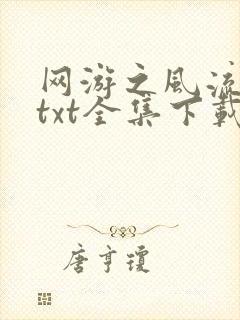 网游之风流
txt全集下载
唐亨琼